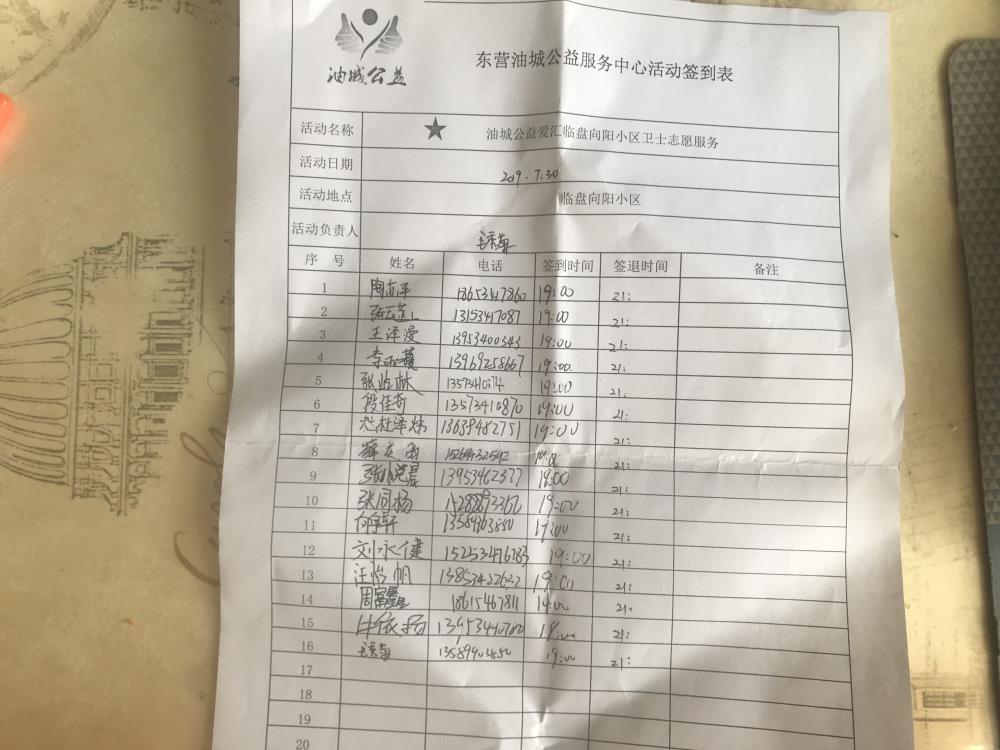 油城公益
东营油城公益服务中心活动签到表
活动名称 ★ 油城公益爱汇临盘向阳小区卫士志愿服务
活动日期 2019.7.30
活动地点 临盘向阳小区
活动负责人
序 号 姓名 电话 签到时间 签退时间 备注
1 18653417860 19:00 21:
2 13153417087 19:00 21:
3 王泽漫 13953400343 19:00 21:
4 13969258667 19:00 21:
5 张屹林 19:00 21:
6 段佳奇 13573410870 19:00 21:
7 13639482751 19:00 21:
8 21:
9 13953462377 19:00 21:
10 张同杨 19:00 21:
11 19:00 21:
12 刘永健 15253476183 19:00 21:
13 汪怡帆 13853422622 19:00 21:
14 18615467811 19:00 21:
15 牛依扬 19:00 21:
16 13589903850 19:00 21:
17
18
19
20